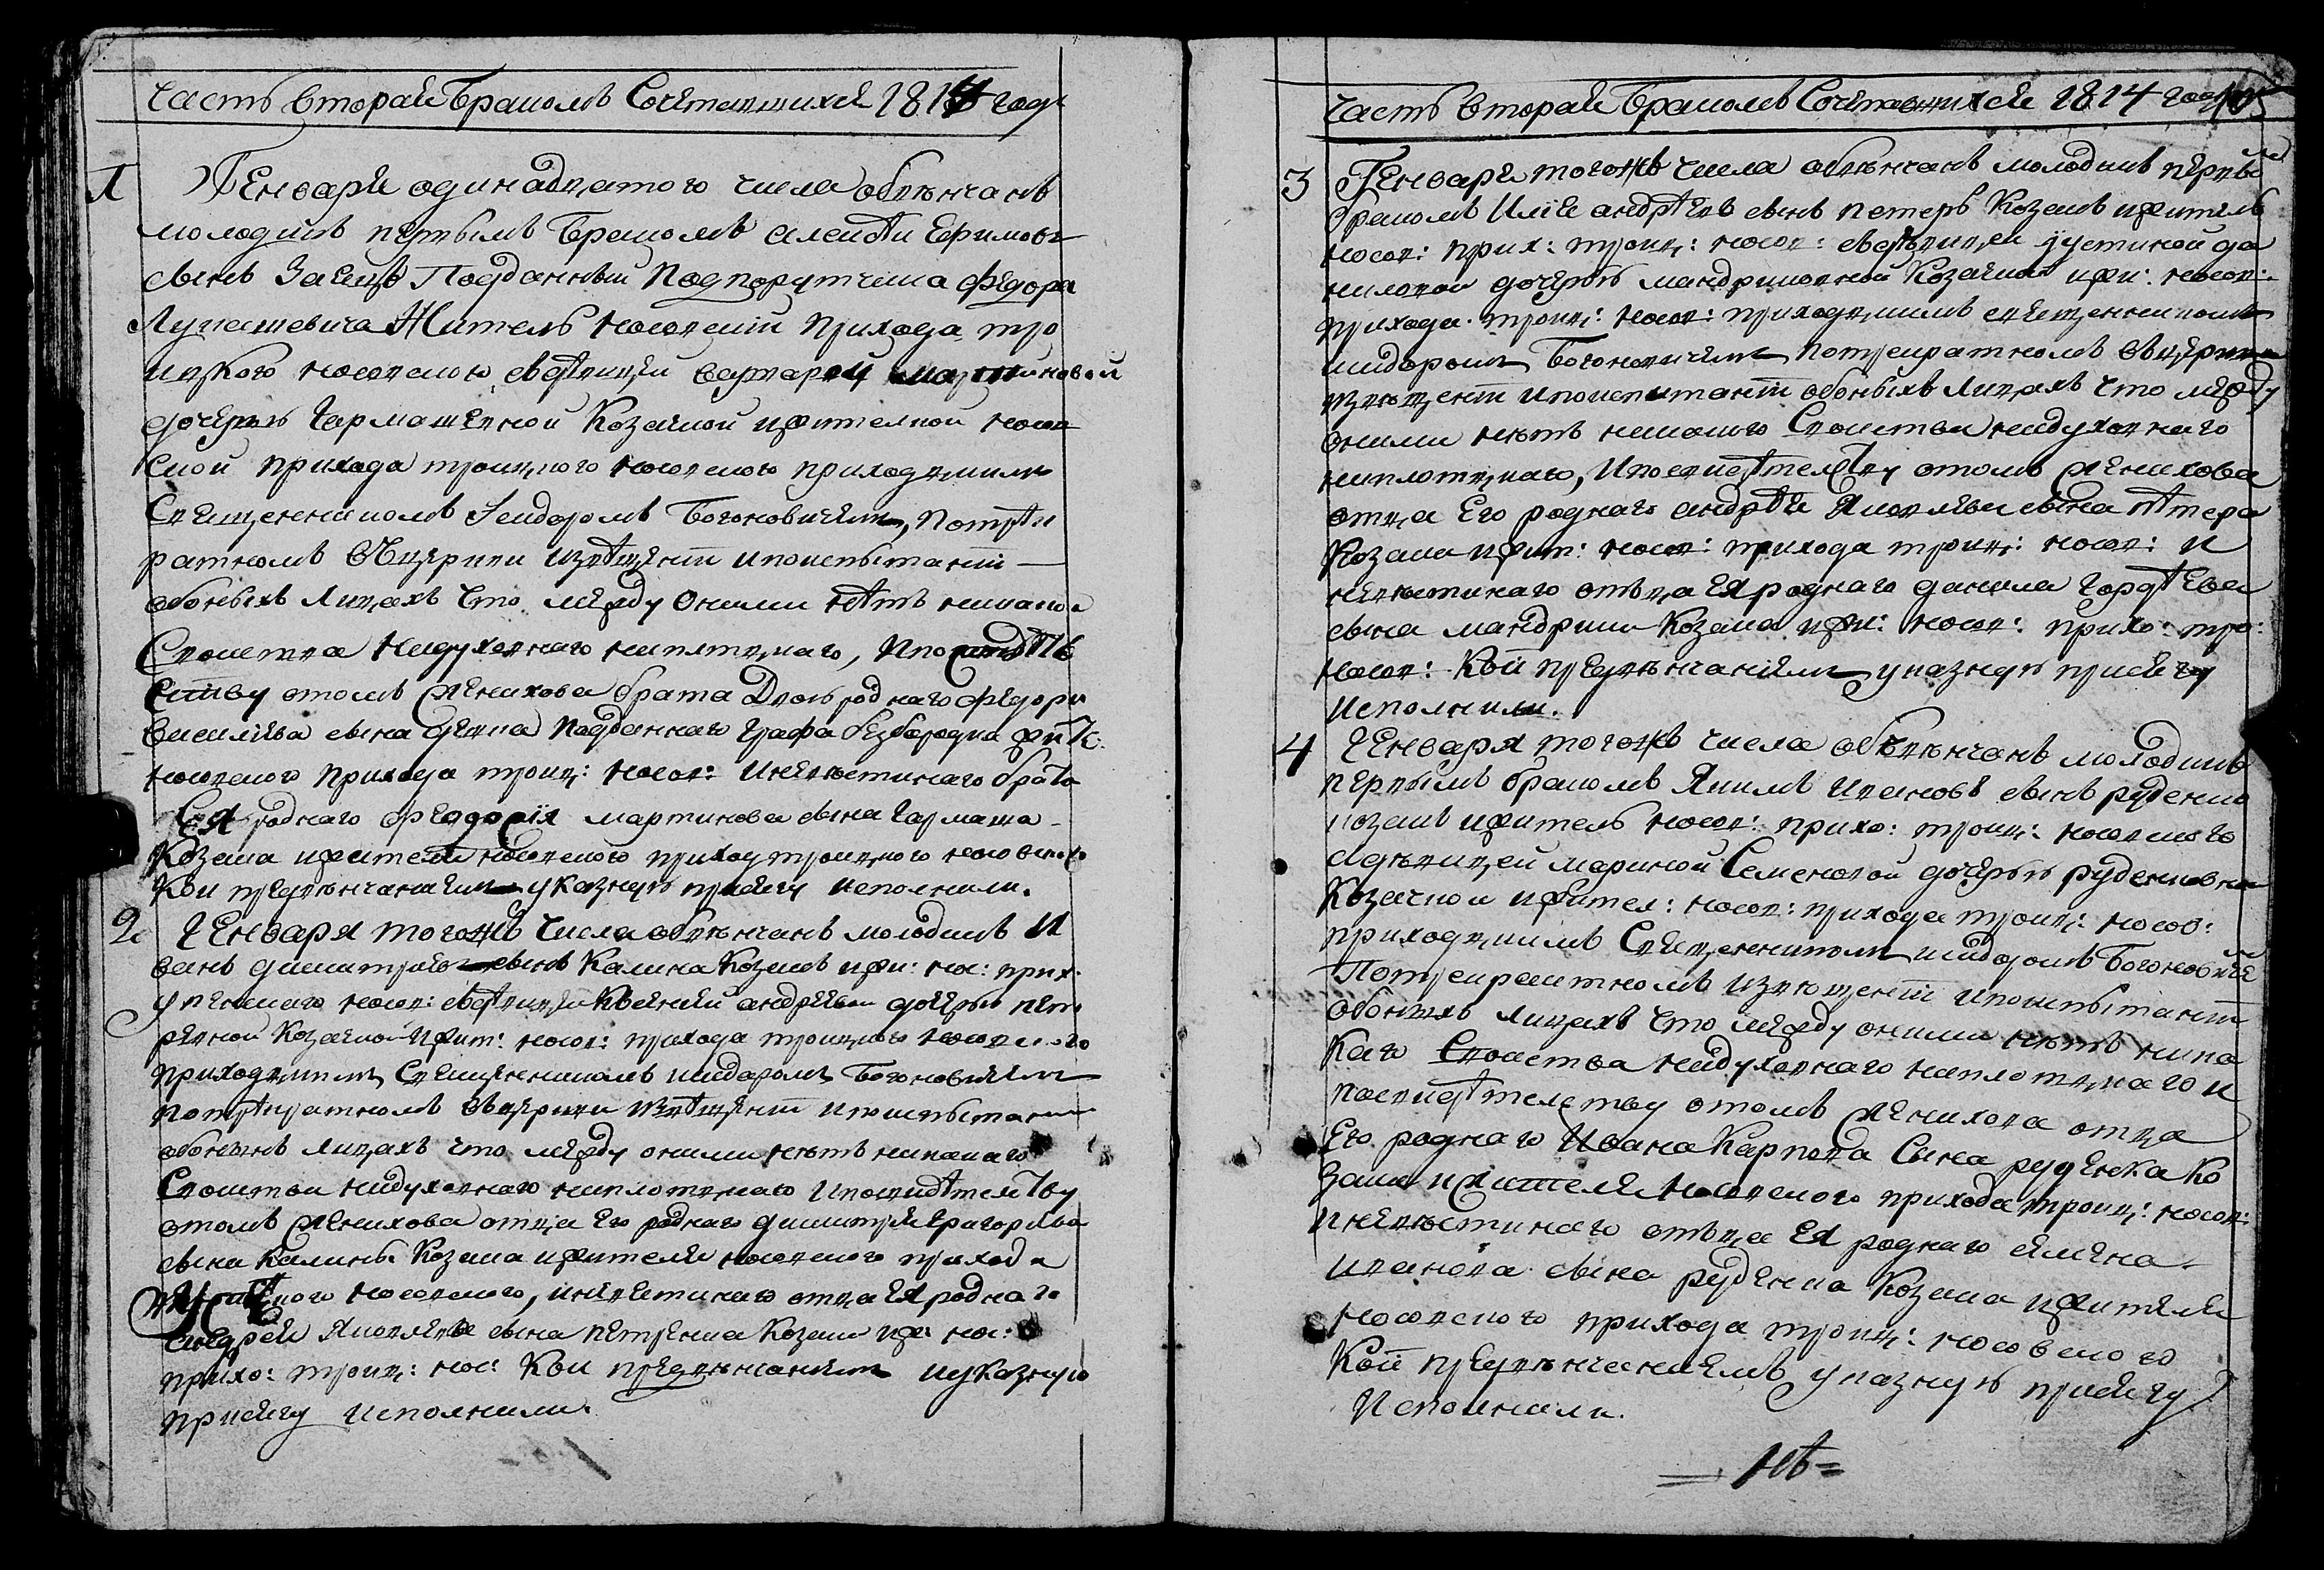 Часть вторая Браколъ Сочетавшихся 1814 году
1 Генваря одинадцатого числа обвѣнчанъ
молодикъ первымъ Бракомъ Алексѣй Ефимовъ
сынъ Заецъ Подданный Подпорутчика Федора
Лукашевича Житель носовский прихода тро
ицкого носовского здѣвицей Варварой Мартиновой
дочерью Гармашевной Козачкой и жителкой носов
ской прихода троицкого носовского приходскимъ
Священникомъ Исидоромъ Богоновичемъ, потрое
кратномъ вцеркви извѣщении и по испытании
обоныхъ лицахъ что между оними нѣтъ никакого
Свойства нидуховнаго ниплотцкаго, и по свидѣтел
ству отомъ женихова брата Двоюроднаго Федора
Василиева сына подданнаго графа Безбородка жит:
носовского прихода троиц: носов: и невѣстинаго брата
Ея роднаго Феодосия мартинова сына Гармаша
Козака и жителя носовского приход троицкого носовского
кои предвѣнчаниемъ указную присягу исполнили.
2 Генваря тогожъ числа обвѣнчанъ молодикъ И
ванъ Димитриевъ сынъ Калина Козакъ и жи: нос: прих:
успенского носов: здѣвицей Ксенией андреевой дочерью пет
ревной Козачкой и жит: носов: прихода троицкого носовского
приходскимъ Священникомъ исидоромъ Богоновичемъ
потроекратномъ вцеркви извѣщении и по испытании
обоныхъ лицахъ что между оними нѣтъ никакаго
Свойства нидуховнаго ниплотцкаго и по свидѣтелству
отомъ женихова отца его роднаго димитрия григориева
сына Калины Козака и жителя носовского прихода
носовского, и невѣстинаго отца Ея роднаго
андрея Яковлева сына петренка Козака и жи: нос:
прихо: троиц: нос: Кои предвѣнчаниемъ указную
присягу исполнили.
Часть вторая Браколъ Сочетавшихся 1814 году
3 Генваря тогожъ числа обвѣнчанъ молодикъ первымъ
бракомъ Илия андрѣевъ сынъ петеръ Козакъ и житель
носов: прих: троиц: носов: здѣвицей Устиной да
ниловой дочерью мандриковной Козачкой и жи: носов:
прихода троиц: носов: приходскимъ священникомъ
исидоромъ Богоновичемъ потроекратномъ вцеркви
извѣщении и по испытании обоныхъ лицахъ что между
оними нѣтъ никакого Свойства нидуховнаго
ниплотцкаго, и по свидѣтелству отомъ женихова
отца Его роднаго андрѣя Яковлева сына петера
Козака и жит: носов: прихода троиц: носов: и
невѣстинаго отвца Ея роднаго данила гордѣева
сына мандрики Козака и жи: носов: прихо: тро:
носов: Кои предвѣнчаниемъ указную присягу
исполнили.
4 Генваря тогожъ числа обвѣнчанъ молодикъ
первымъ бракомъ Якимъ Ивановъ сынъ руденко
козакъ и житель носов: прихо: троиц: носовского
здѣвицей мариной Семеновой дочерью руденковной
Козачкой и жител: носов: прихода троиц: носов:
приходскимъ Священникомъ исидоромъ Богоновичемъ
Потроекратномъ извѣщении и по испытании
обоныхъ лицахъ что между оними нѣтъ ника
каго Свойства нидуховнаго ниплотцкаго и
по свидѣтелству отомъ женихова отца
Его роднаго Ивана Карпова Сына руденка Ко
зака и жителя носовского прихода троиц: носов:
и невѣстинаго отвца Ея роднаго семена
иванова сына руденка Козака и жителя
носовского прихода троиц: носовского
Кои предвѣнчаниемъ указную присягу
Исполнили.